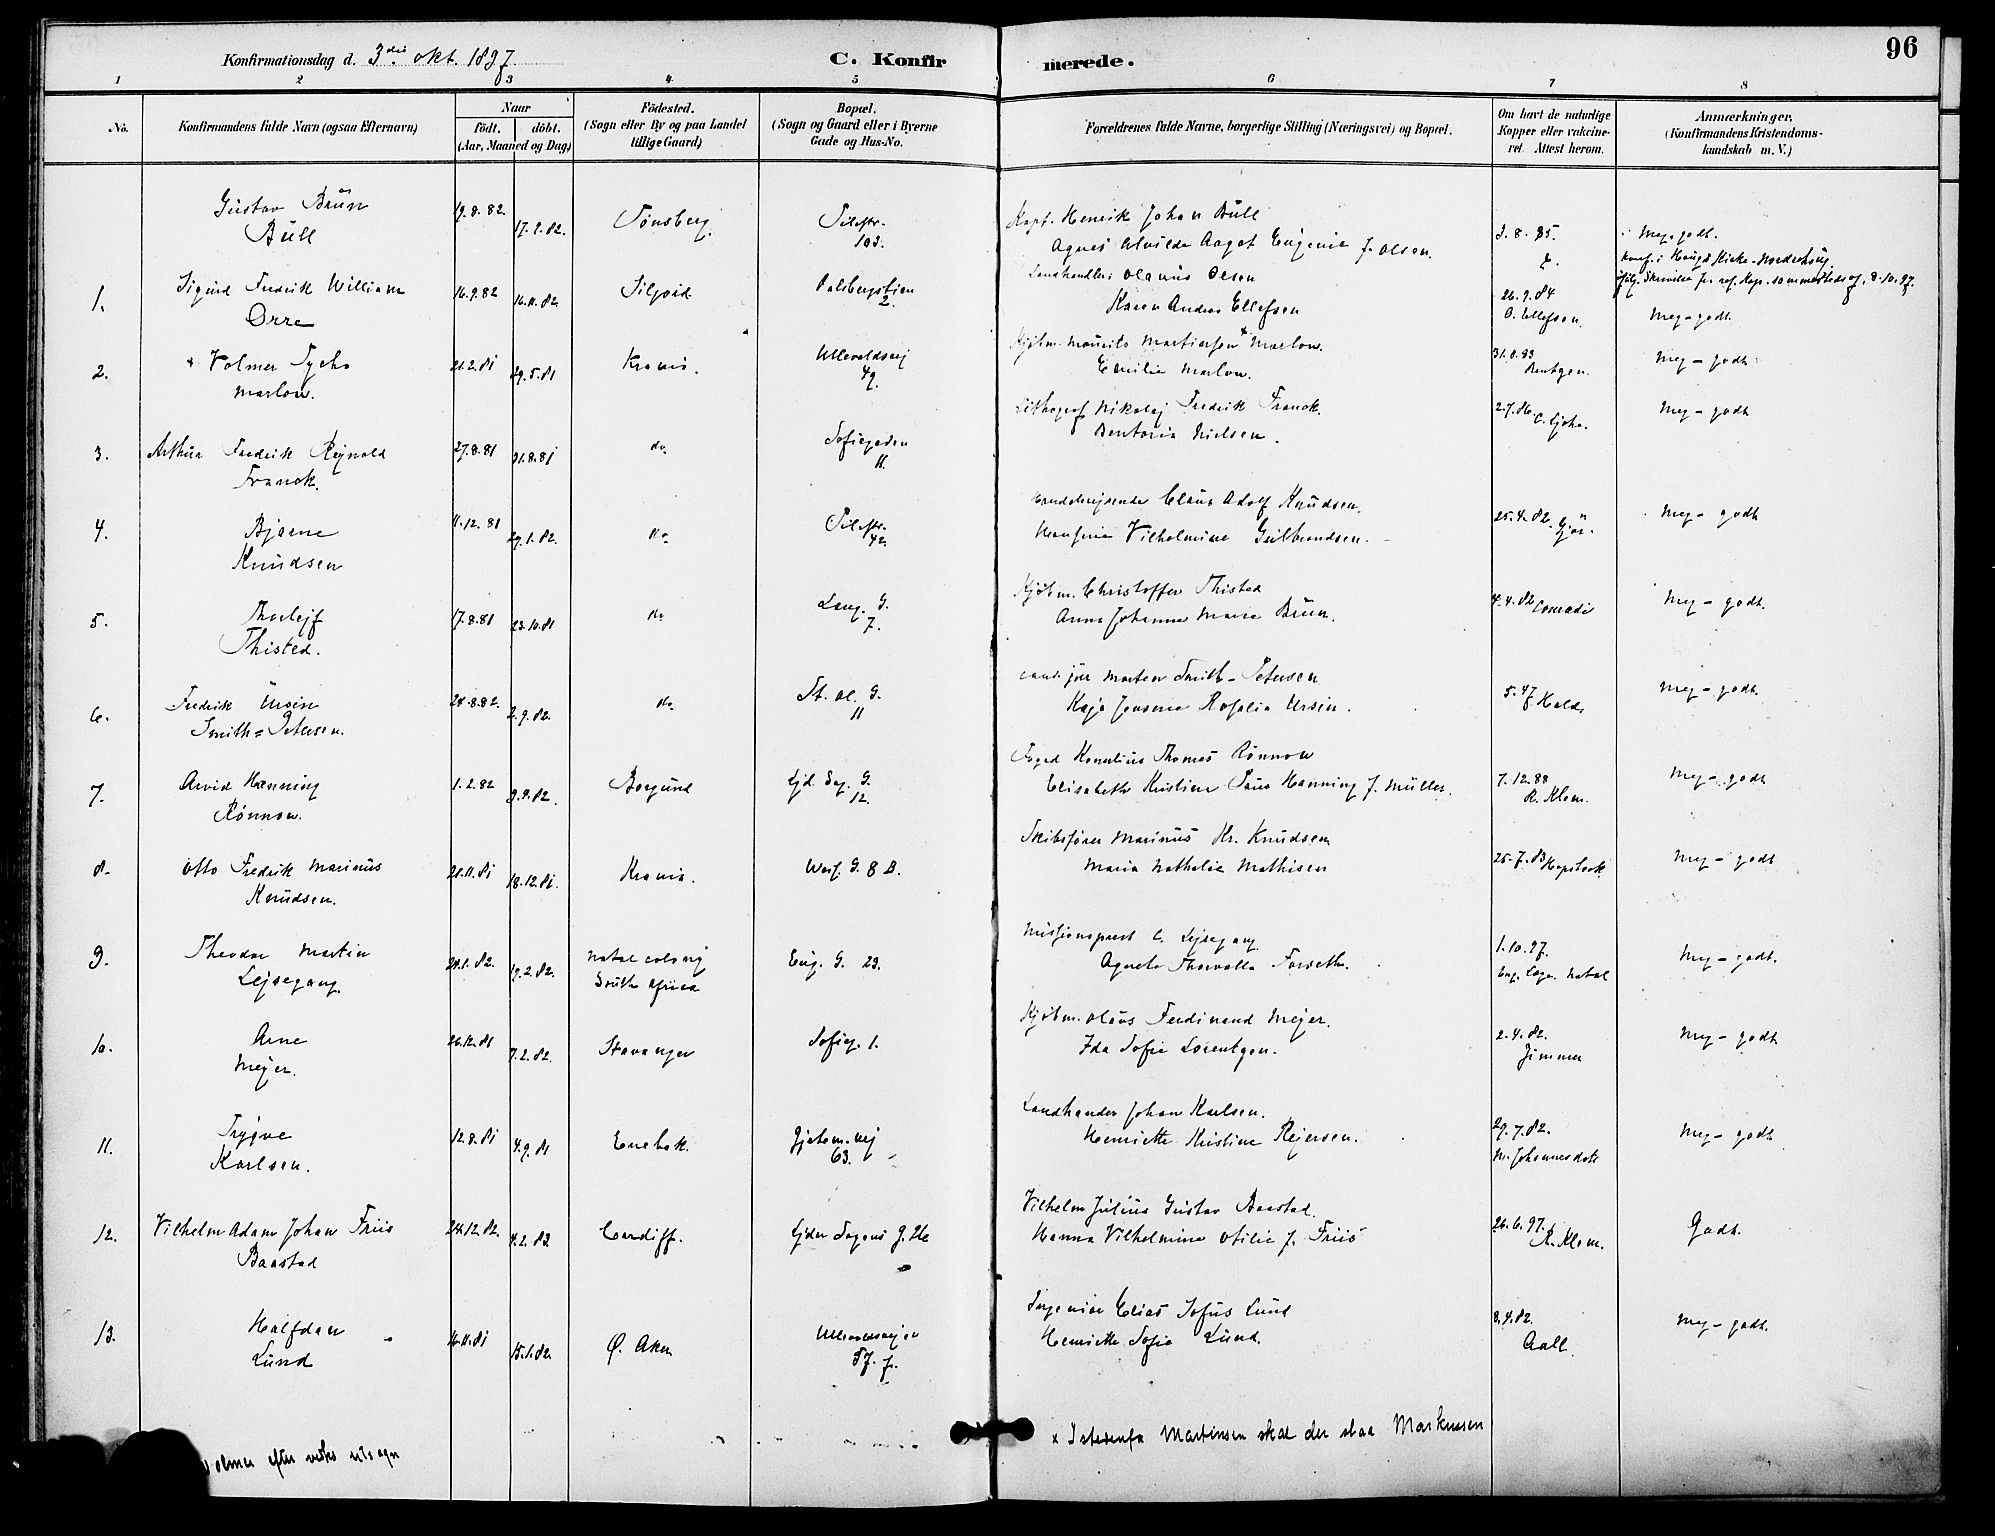 96
Konfirmationsdag d. 3die okt. 1897
C. Konfirmerede.
1 2 3 4 5 6 7 8
No.
Konfirmandens fulde Navn (ogsaa Efternavn)
Naar
födt. döbt.
(Aar, Maaned og Dag)
Födested.
(Sogn eller By og paa Landet
tillige Gaard)
Bopæl.
(Sogn og Gaard eller i Byerne
Gade og Hus-No.
Forældrenes fulde Navne, borgerlige Stilling (Næringsvei) og Bopæl.
Om havt de naturlige
Kopper eller vakcine-
ret. Attest herom.
Anmærkninger.
(Konfirmandens Kristendoms-
kundskab m. V.)
Gustav Brün
Büll
19.8.82. Tønsberg.
Pilestr.
103.
Kapt. Henrik Johan Büll
Agnes Alvilde Aagot Eugenie f. Olsen.
3.8.85.
Meg. godt.
1. Sigurd Fredrik William
Orre
16.9.82 16.11.82
2.
Landhandler Olaus Olsen
Karen Andrea Ellefsen
26.9.84
O. Ellefsen.
Meg-godt.
2. Volmer Tycho
Marlow.
21.2.81 29.5.81 Kravia.
Ullevoldsvej
49.
Kjøbm. Mourits Martinsen Marlow.
Emilie Marlow.
31.8.83
Bentzen.
Meg-godt.
3. Arthur Fredrik Reynold
Franck.
27.8.81 31.8.81 do
Sofiegaden
11.
Lithograf Nikolaj Fredrik Franck.
Bentoria Nielsen.
Meg-godt
4. Bjarne
Knudsen
11.12.81 29.1.82. do
Pilestr.
42.
Claus Adolf Knudsen.
Vilhelmine Gulbrandsen.
25.4.82.
Meg-godt
5. Thorlejf
Thisted.
17.8.81 23.10.81 do
Lang. G.
7.
Kjøbm. Christoffer Thisted
Anna Johanne Marie Brun.
4.4.82 Conradi
Meg-godt.
6. Fredrik Ursin
Smith=Petersen.
28.8.82. 2.9.82. do
St. Ol. G.
11
cand. jur Morten Smith-Petersen
Kaja Jensine Rosalie Ursin.
Meg-godt.
7. Arvid Hanning
Rönnow.
1.2.82 9.9.82. Borgund
12.
Foged Kornelius Thomas Rönnow
Elisabeth Kristine Hanning f. Müller.
7.12.88
R. Klem.
Meg-godt
8. Otto Fredrik Marinus
Knudsen.
21.11.81 18.12.81. Kravia.
G. 8 B.
Skibsfører Marinus Kr. Knudsen
Maria Nathalie Mathisen
Meg-godt
9. Theodor Martin
Lejsegang.
29.2.82. Natal colony
South Africa
Eug. G. 23.
Missionsprest L. Lejsegang
Agnete Thorvalla Forseth.
1.10.97.
Natal
Meg-godt.
10. Arne
Mejer.
26.12.81 7.2.82. Stavanger
Sofieg. 1.
Kjøbm. Olaus Ferdinand Mejer.
Ida Sofie Lorentzen.
2.4.82.
Zimmer
Meg-godt
11. Trygve
Karlsen.
12.8.81 4.9.81 Enebak.
63.
Landhandler Johan Karlsen.
Henriette Kristine Rejersen.
29.7.82.
Meg-godt
12. Vilhelm Adam Johan Friis
Baastad
24.12.82. 4.2.83. Cardiff.
Vilhelm Julius Gustav Baastad.
Hanna Vilhelmine Otilie f. Friis
26.6.97.
R. Klem.
Godt.
13. Halfdan
Lund
16.11.81 15.1.82. Ø. Aker
Ingeniør Elias Sofus Lund
Henriette Sofie Lund.
8.4.82.
Aall.
Meg-godt.
x Istedenfor Martinsen skal der staa Markussen